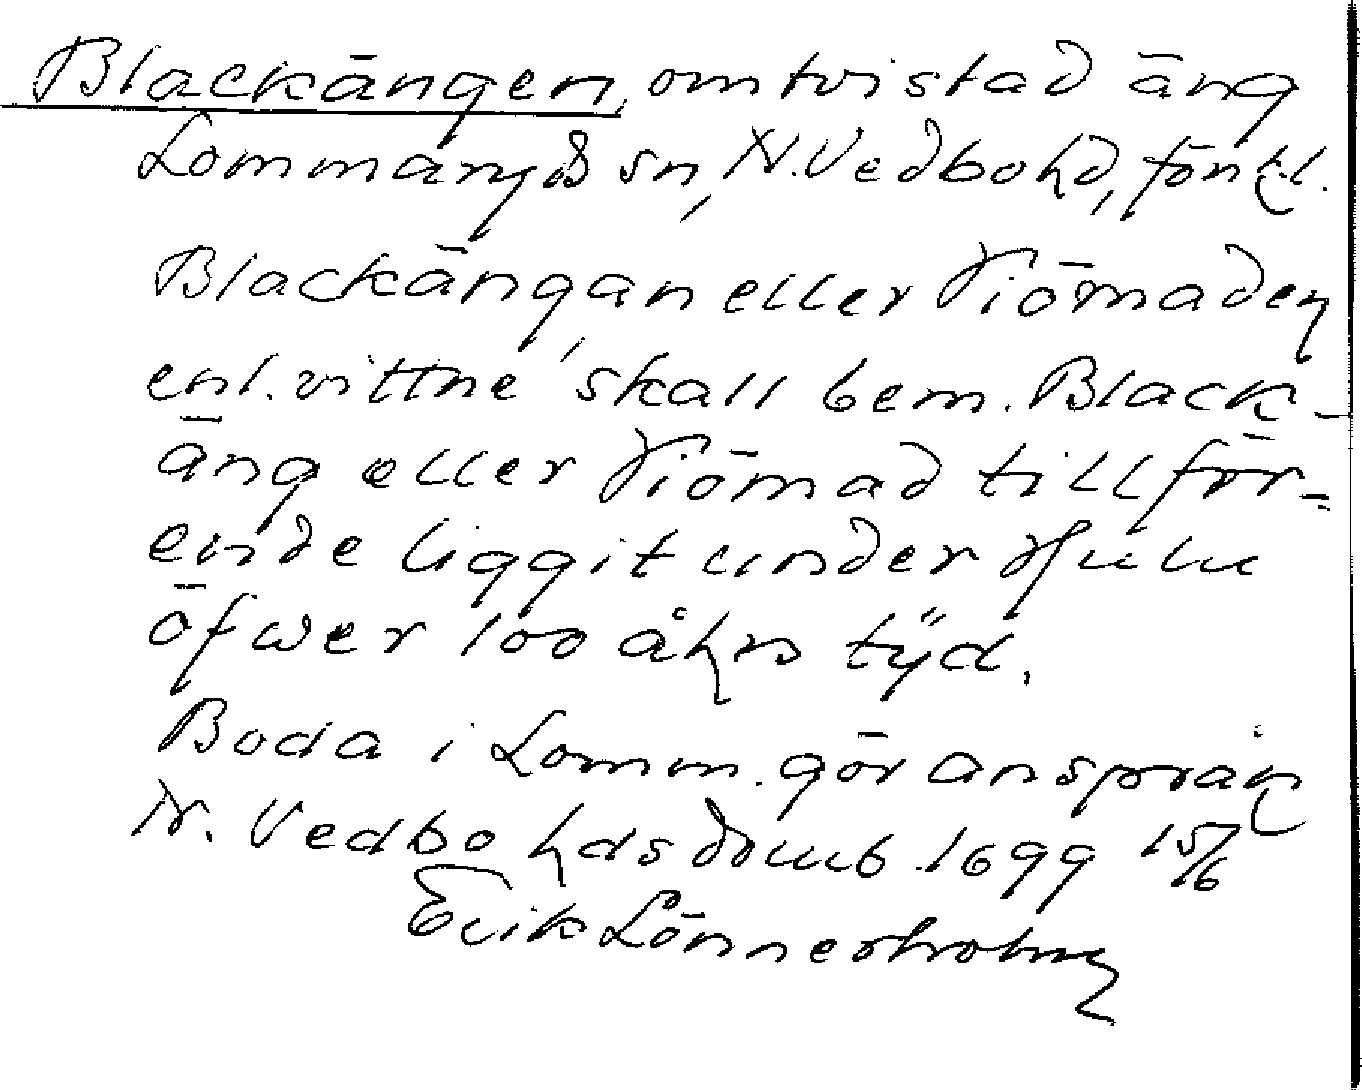 Blackängen, omtvistad äng
Lommaryds sn, N. Vedbo hd, Jönk. l.
Blackängan eller Tiömaden
enl. vittne, skall bem. Black-
äng eller Tiömad tillför-
ende liggit under Hulu
öfwer 100 åhrs tÿd.
Boda i Lomm. gör anspråk
N. Vedbo hds domb. 1699 15/6
Erik Lönnerholm